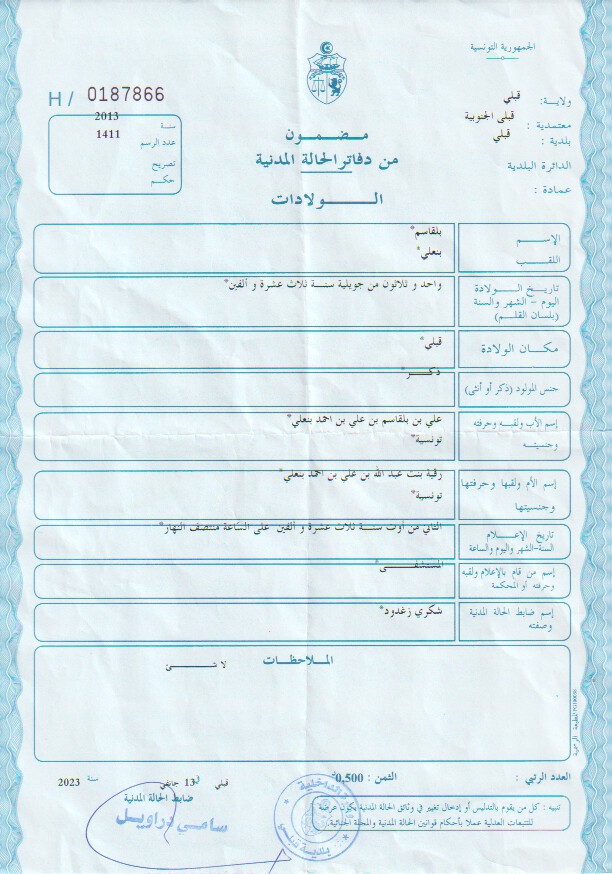 الجمهورية التونسية
H / 0187866
ولاية: قبلي
معتمدية : قبلى الجنوبية
بلدية : قبلي
الدائرة البلدية
عمادة :
سنة 2013
عدد الرسم 1411
تصريح
حكم
مضمون
من دفاتر الحالة المدنية
الولادات
الإسم بلقاسم*
اللقب بنعلي*
تاريخ الولادة
اليوم - الشهر والسنة
(بلسان القلم)
واحد و ثلاثون من جويلية سنة ثلاث عشرة و ألفين*
مكان الولادة قبلي*
جنس المولود (ذكر أو أنثى) ذكر*
إسم الأب ولقبه وحرفته
وجنسيته
علي بن بلقاسم بن علي بن احمد بنعلي*
تونسية*
إسم الأم ولقبها وحرفتها
وجنسيتها
رقية بنت عبد الله بن علي بن احمد بنعلي*
تونسية*
تاريخ الإعلام
السنة-الشهر واليوم والساعة
الثاني من أوت سنة ثلاث عشرة و ألفين على الساعة منتصف النهار*
إسم من قام بالإعلام ولقبه
وحرفته أو المحكمة
المستشفى*
إسم ضابط الحالة المدنية
وصفته
شكري زغدود*
الملاحظات
لا شيء
المطبعة الرسمية
العدد الرتبي :
الثمن : 0,500
قبلي في 13 جانفي سنة 2023
ضابط الحالة المدنية
سامي دراويل
بلدية قبلي
تنبيه : كل من يقوم بالتدليس أو إدخال تغيير في وثائق الحالة المدنية يكون عرضة
للتتبعات العدلية عملا بأحكام قوانين الحالة المدنية والمجلة الجنائية.